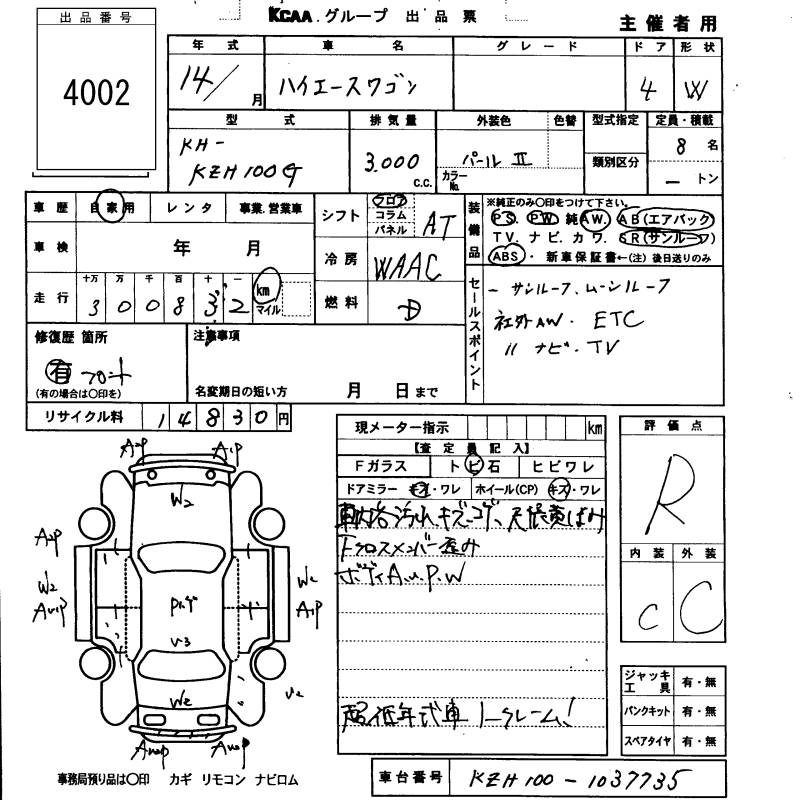 KCAA.グループ 出品票
主催者用
出品番号
4002
年式 車名 グレード ドア 形状
14/ 月 ハイエースワゴン 4 W
型式 排気量 外装色 色替 型式指定 定員・積載
KH-
KZH100G 3.000 c.c. パールII カラーNo. 類別区分
8 名
- トン
車歴 自家用 レンタ 事業.営業車
車検 年 月
走行 十万 万 千 百 十 一
3 0 0 8 3 2 km マイル
シフト フロア コラム パネル AT
冷房 WAAC
燃料 D
装備品
※純正のみ〇印をつけて下さい。
PS. PW 純 AW. AB(エアバック)
TV. ナビ. カワ. SR(サンルーフ)
ABS. 新車保証書←(注) 後日送りのみ
セールスポイント
ー サンルーフ、ムーンルーフ
社外AW. ETC
〃 ナビ・TV
修復歴 箇所
有 フロント
(有の場合は〇印を)
注意事項
名変期日の短い方 月 日 まで
リサイクル料 1 4 8 3 0 円
現メーター指示 km
【査定員記入】
Fガラス トビ石 ヒビワレ
ドアミラー キズ・ワレ ホイール(CP) キズ・ワレ
車内若汚れキズコゲ、天張黄ばみ
Fクロスメンバー歪み
ボディA.u.P.W
超低年式車ノークレーム!
評価点
R
内装 外装
C C
ジャッキ工具 有・無
パンクキット 有・無
スペアタイヤ 有・無
A2P A1P
W2
A2P
W2 W2
AU1P A1P
P1.ゲ
U3
U2
W2
AU2P AU2P
事務局預り品は〇印 カギ リモコン ナビロム
車台番号 KZH100-1037735